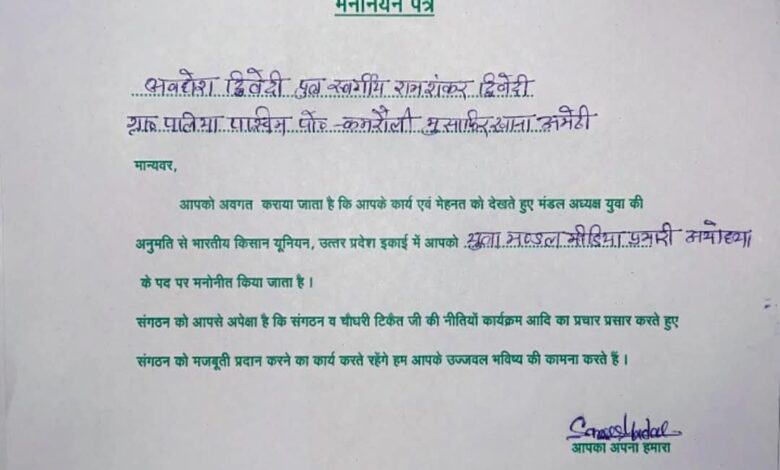 मनोनयन पत्र
अवधेश द्विवेदी पुत्र स्वर्गीय रामशंकर द्विवेदी
ग्राम पालिया पश्चिम पो० -कमरौली मुसाफिरखाना अमेठी
मान्यवर,
आपको अवगत कराया जाता है कि आपके कार्य एवं मेहनत को देखते हुए मंडल अध्यक्ष युवा की
अनुमति से भारतीय किसान यूनियन, उत्तर प्रदेश इकाई में आपको युवा मण्डल मीडिया प्रभारी अयोध्या
के पद पर मनोनीत किया जाता है।
संगठन को आपसे अपेक्षा है कि संगठन व चौधरी टिकैत जी की नीतियों कार्यक्रम आदि का प्रचार प्रसार करते हुए
संगठन को मजबूती प्रदान करने का कार्य करते रहेंगे हम आपके उज्जवल भविष्य की कामना करते हैं।
आपका अपना हमारा